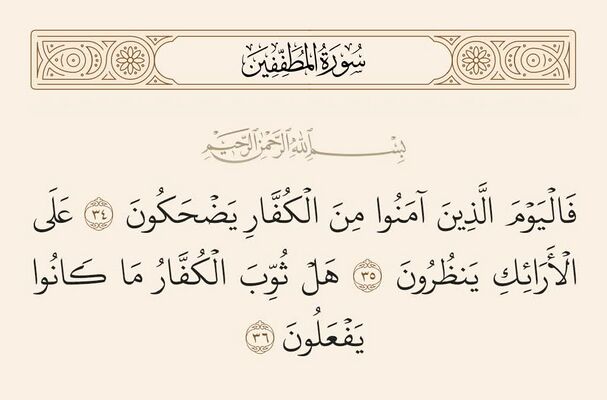 سُورَةُ المُطَفِّفِينَ
بِسْمِ اللَّهِ الرَّحْمَنِ الرَّحِيمِ
فَالْيَوْمَ الَّذِينَ آمَنُوا مِنَ الْكُفَّارِ يَضْحَكُونَ ٣٤ عَلَى
الْأَرَائِكِ يَنظُرُونَ ٣٥ هَلْ ثُوِّبَ الْكُفَّارُ مَا كَانُوا
يَفْعَلُونَ ٣٦